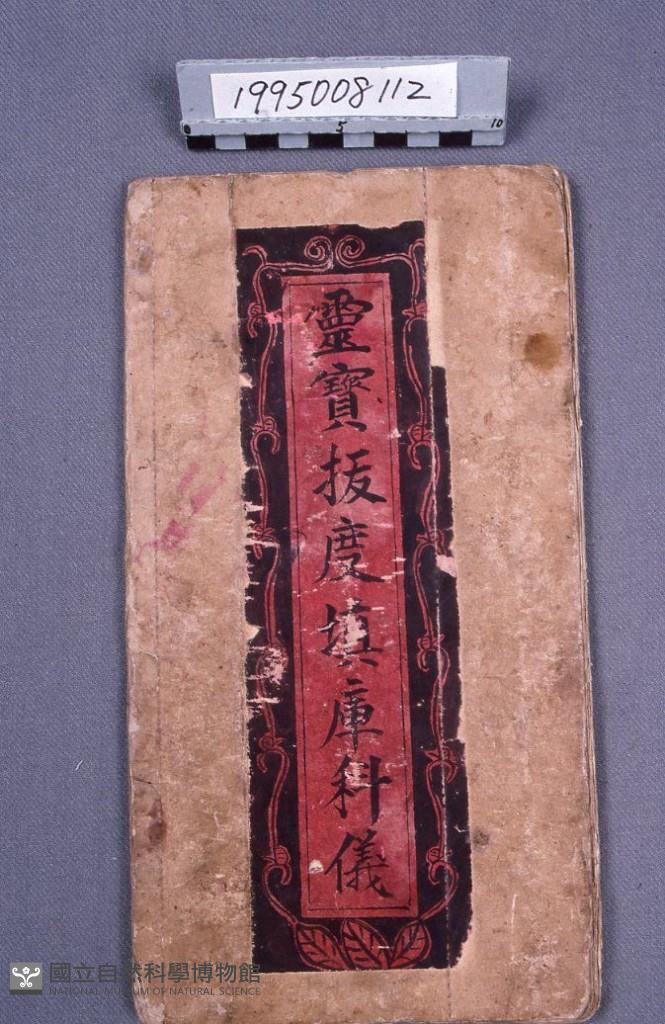 1995008112
0 5 10
靈寶拔度填庫科儀
國立自然科學博物館
NATIONAL MUSEUM OF NATURAL SCIENCE